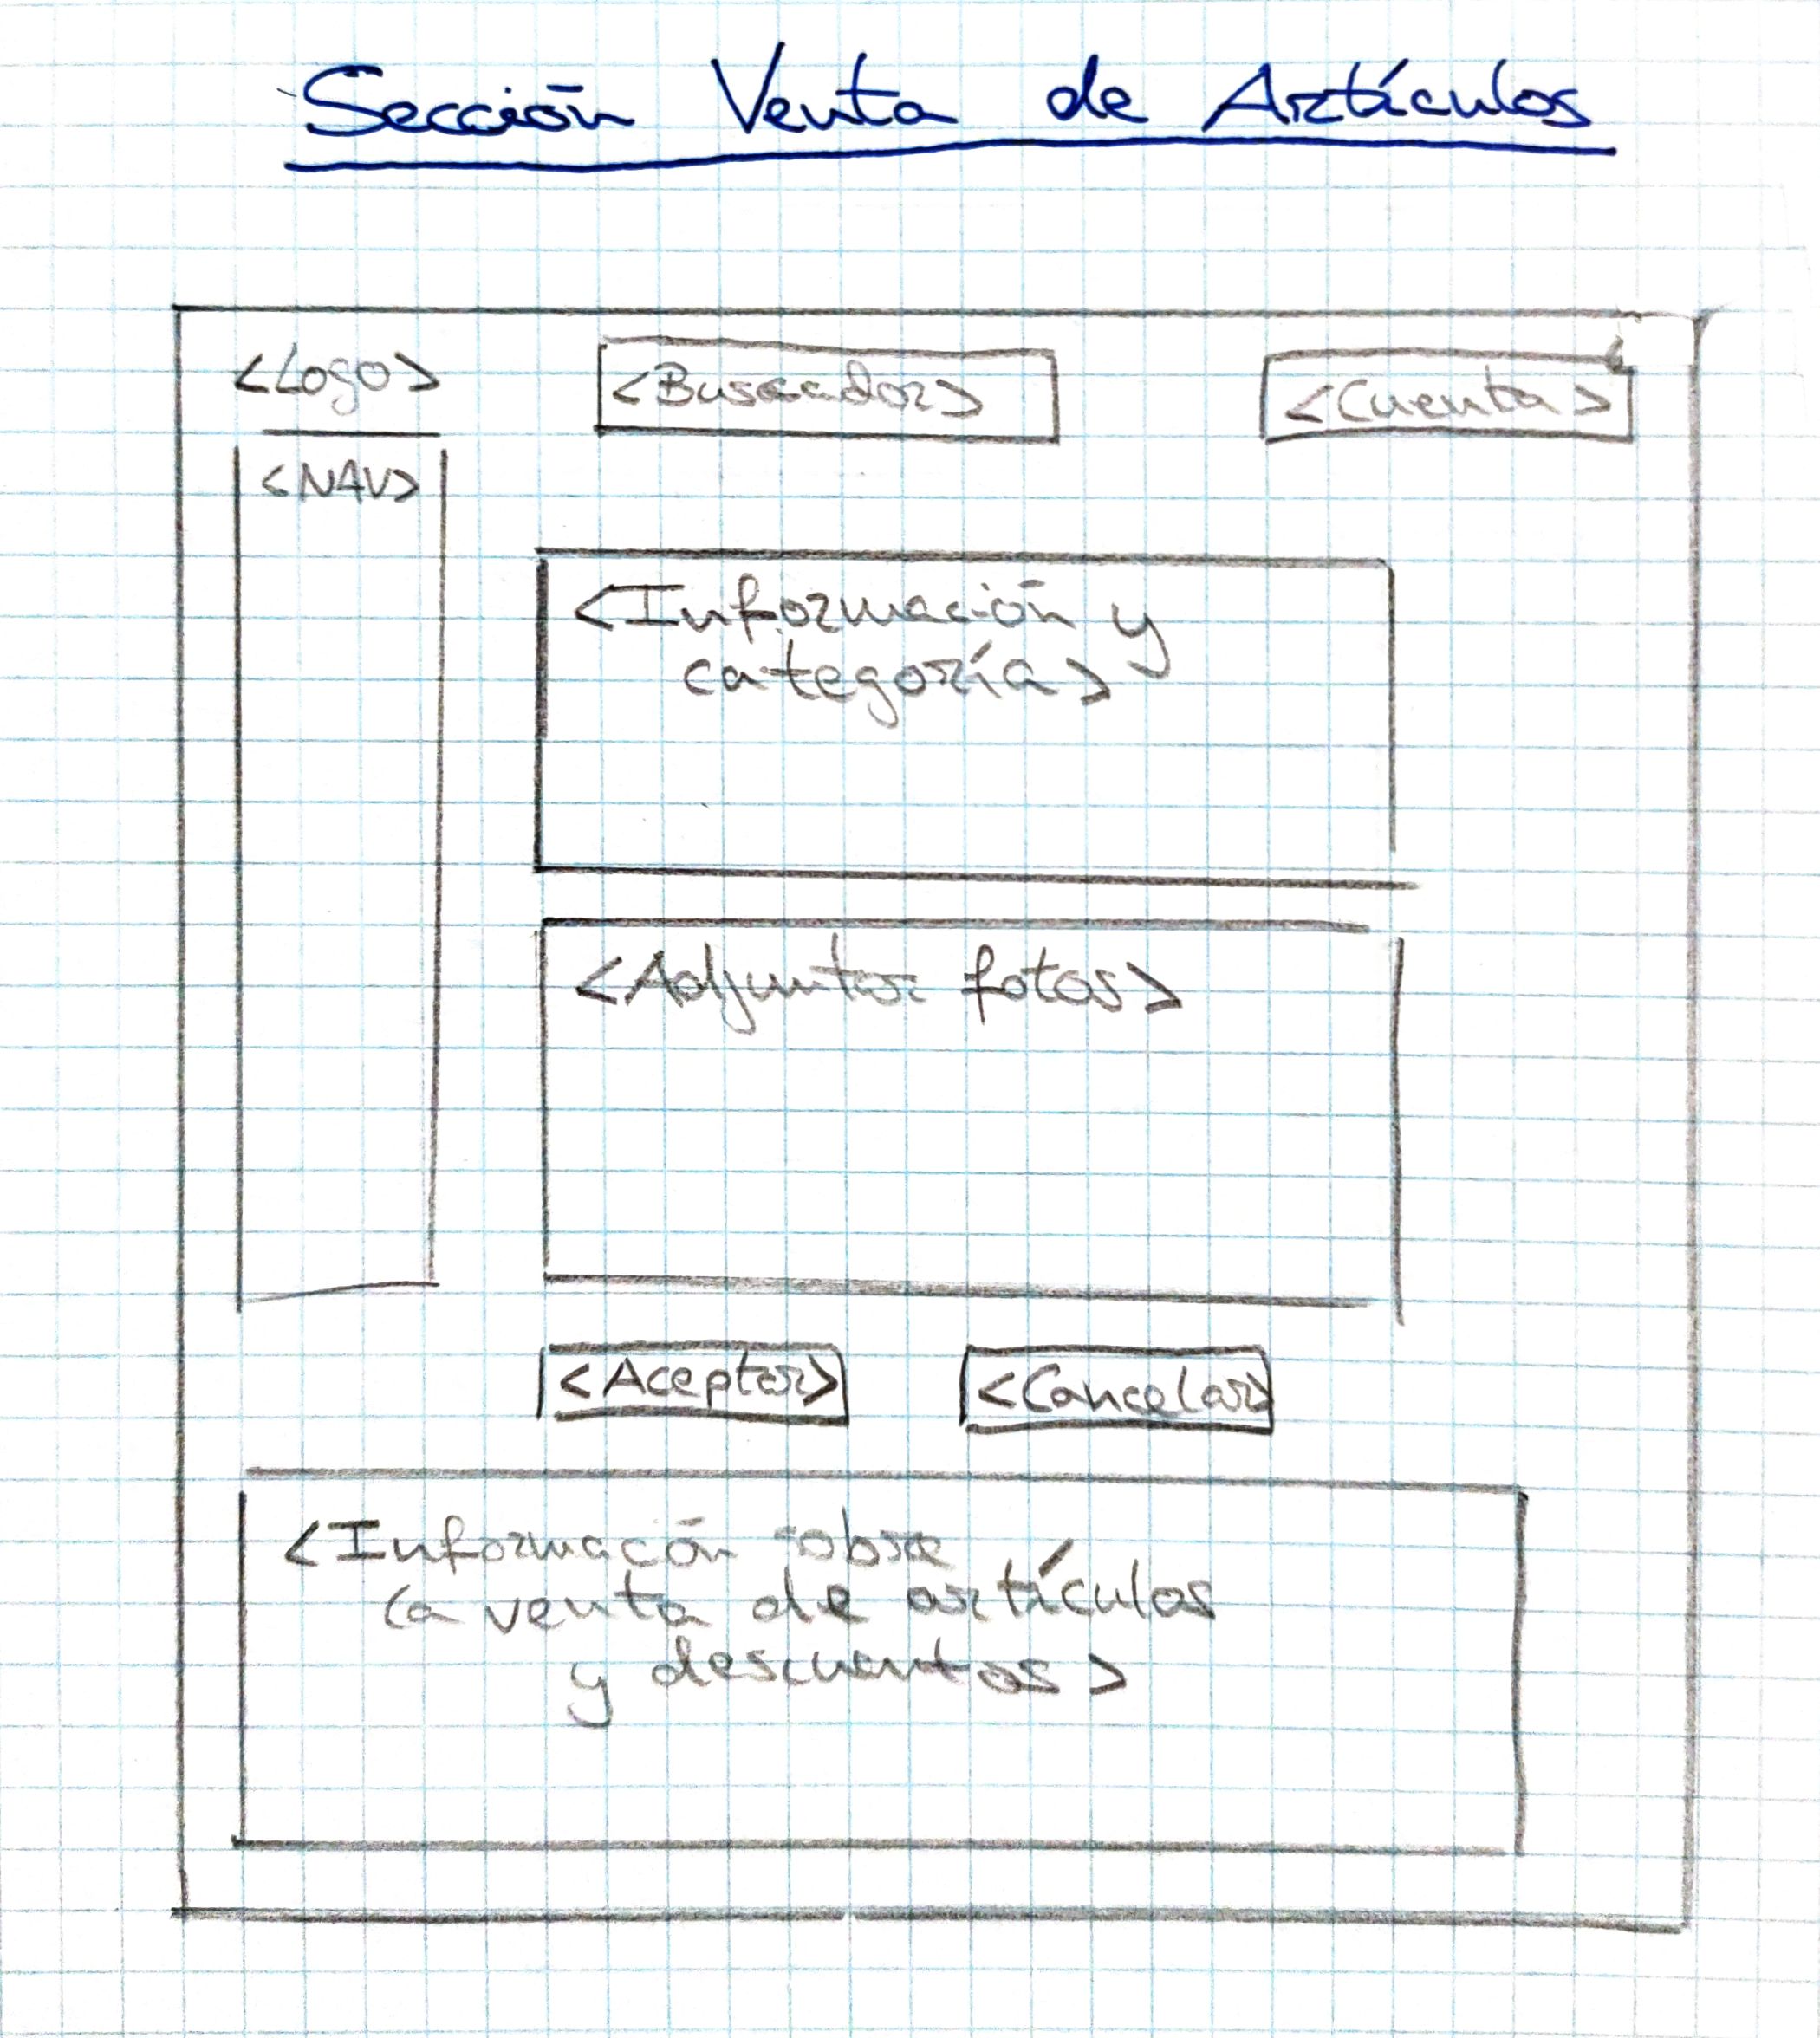 Sección Venta de Artículos
<Logo>
<Buscador>
<Cuenta>
<NAV>
<Información y
categoría>
<Adjuntar fotos>
<Aceptar>
<Cancelar>
<Información sobre
la venta de artículos
y descuentos>